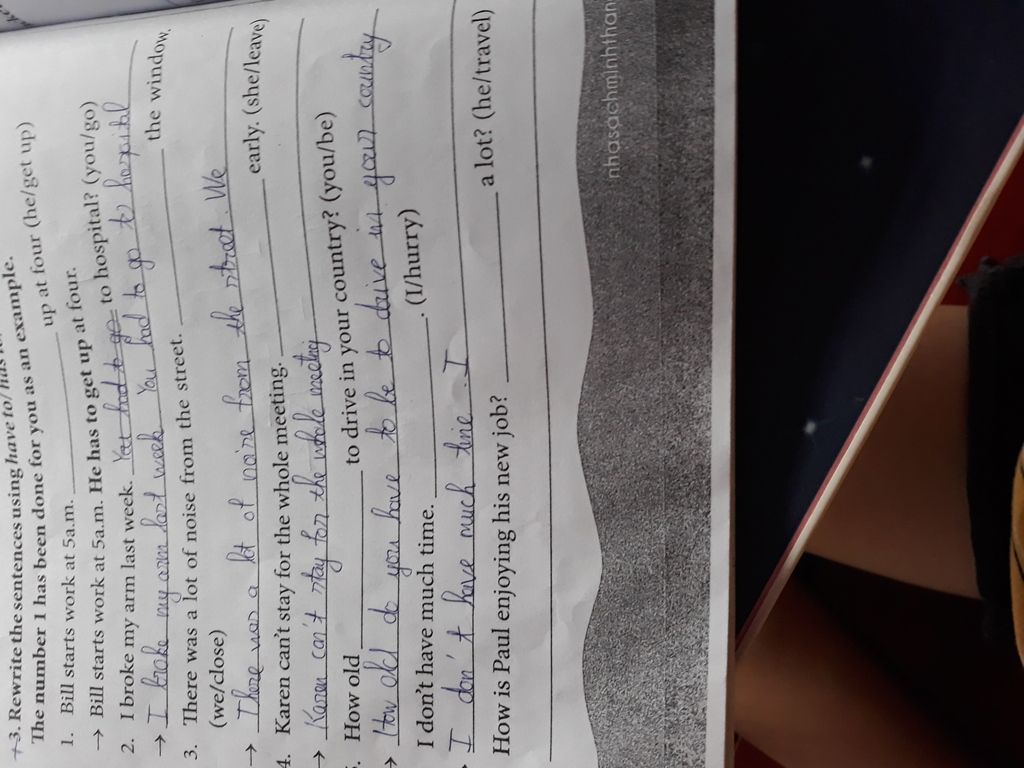 3. Rewrite the sentences using have to/has to
The number 1 has been done for you as an example.
1. Bill starts work at 5a.m. ____________ up at four (he/get up)
→ Bill starts work at 5a.m. He has to get up at four.
2. I broke my arm last week. You had to go to hospital? (you/go)
→ I broke my arm last week You had to go to hospital
3. There was a lot of noise from the street. ____________ the window.
(we/close)
→ There was a lot of noise from the street. We
4. Karen can't stay for the whole meeting. ____________ early. (she/leave)
→ Karen can't stay for the whole meeting
How old ____________ to drive in your country? (you/be)
→ How old do you have to be to drive in your country
I don't have much time. ____________. (I/hurry)
I don't have much time. I
How is Paul enjoying his new job? ____________ a lot? (he/travel)
nhasachminhthan